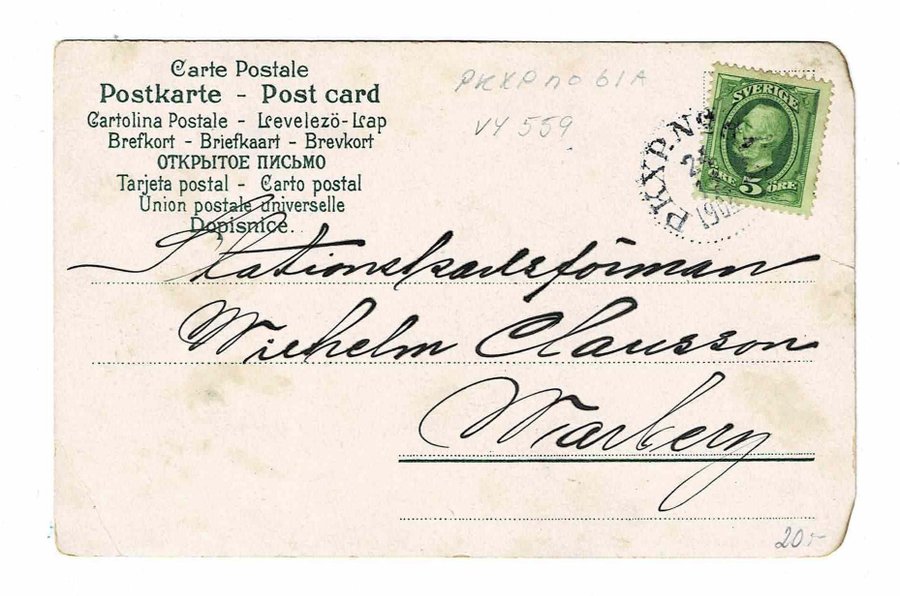 Carte Postale
Postkarte - Post card
Cartolina Postale - Levelezö-Lap
Brefkort - Briefkaart - Brevkort
ОТКРЫТОЕ ПИСЬМО
Tarjeta postal - Carto postal
Union postale universelle
Dopisnice.
PKXP no 61A
VY 559
SVERIGE
ÖRE 5 ÖRE
PKXP. No
Stationskarlsförman
Wilhelm Clausson
Warberg
20:-